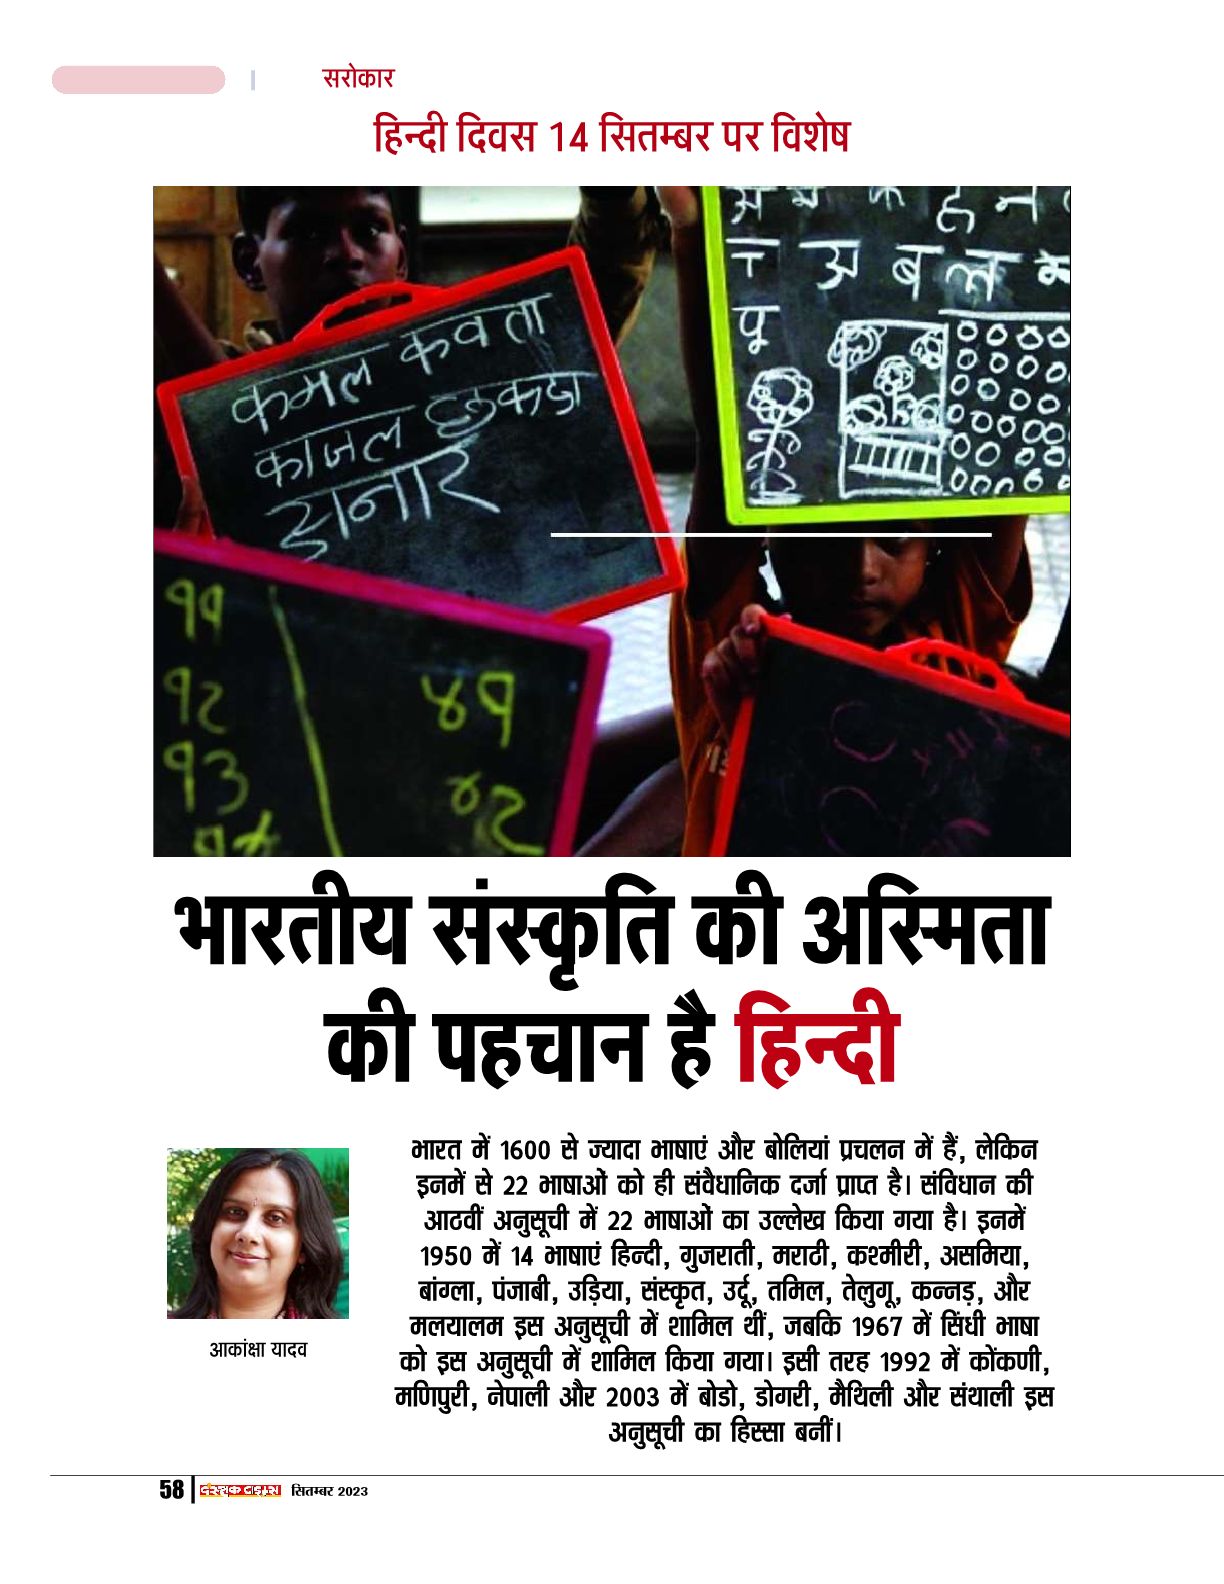 सरोकार
हिन्दी दिवस 14 सितम्बर पर विशेष
कमल कवता
काजल
अ ब ल
११
१२
१३
४१
४२
भारतीय संस्कृति की अस्मिता
की पहचान है हिन्दी
भारत में 1600 से ज्यादा भाषाएं और बोलियां प्रचलन में हैं, लेकिन
इनमें से 22 भाषाओं को ही संवैधानिक दर्जा प्राप्त है। संविधान की
आठवीं अनुसूची में 22 भाषाओं का उल्लेख किया गया है। इनमें
1950 में 14 भाषाएं हिन्दी, गुजराती, मराठी, कश्मीरी, असमिया,
बांग्ला, पंजाबी, उड़िया, संस्कृत, उर्दू, तमिल, तेलुगू, कन्नड़, और
मलयालम इस अनुसूची में शामिल थीं, जबकि 1967 में सिंधी भाषा
को इस अनुसूची में शामिल किया गया। इसी तरह 1992 में कोंकणी,
मणिपुरी, नेपाली और 2003 में बोडो, डोगरी, मैथिली और संथाली इस
अनुसूची का हिस्सा बनीं।
आकांक्षा यादव
58 सितम्बर 2023